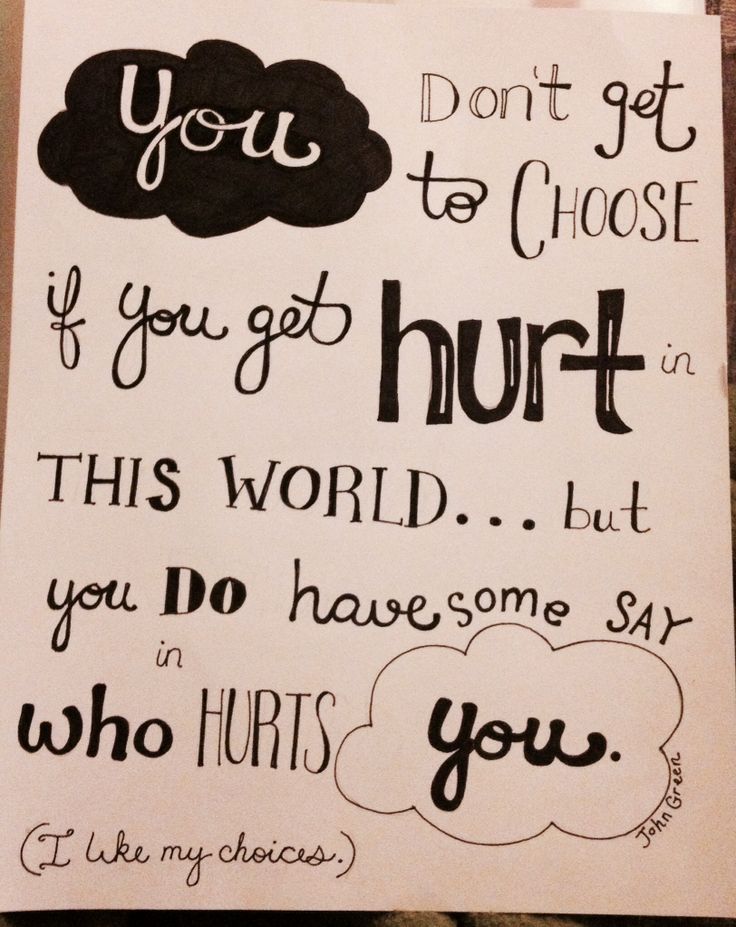 you Don't get
to CHOOSE
if you get hurt in
THIS WORLD... but
you Do have some SAY
in
who HURTS you.
John Green
(I like my choices.)